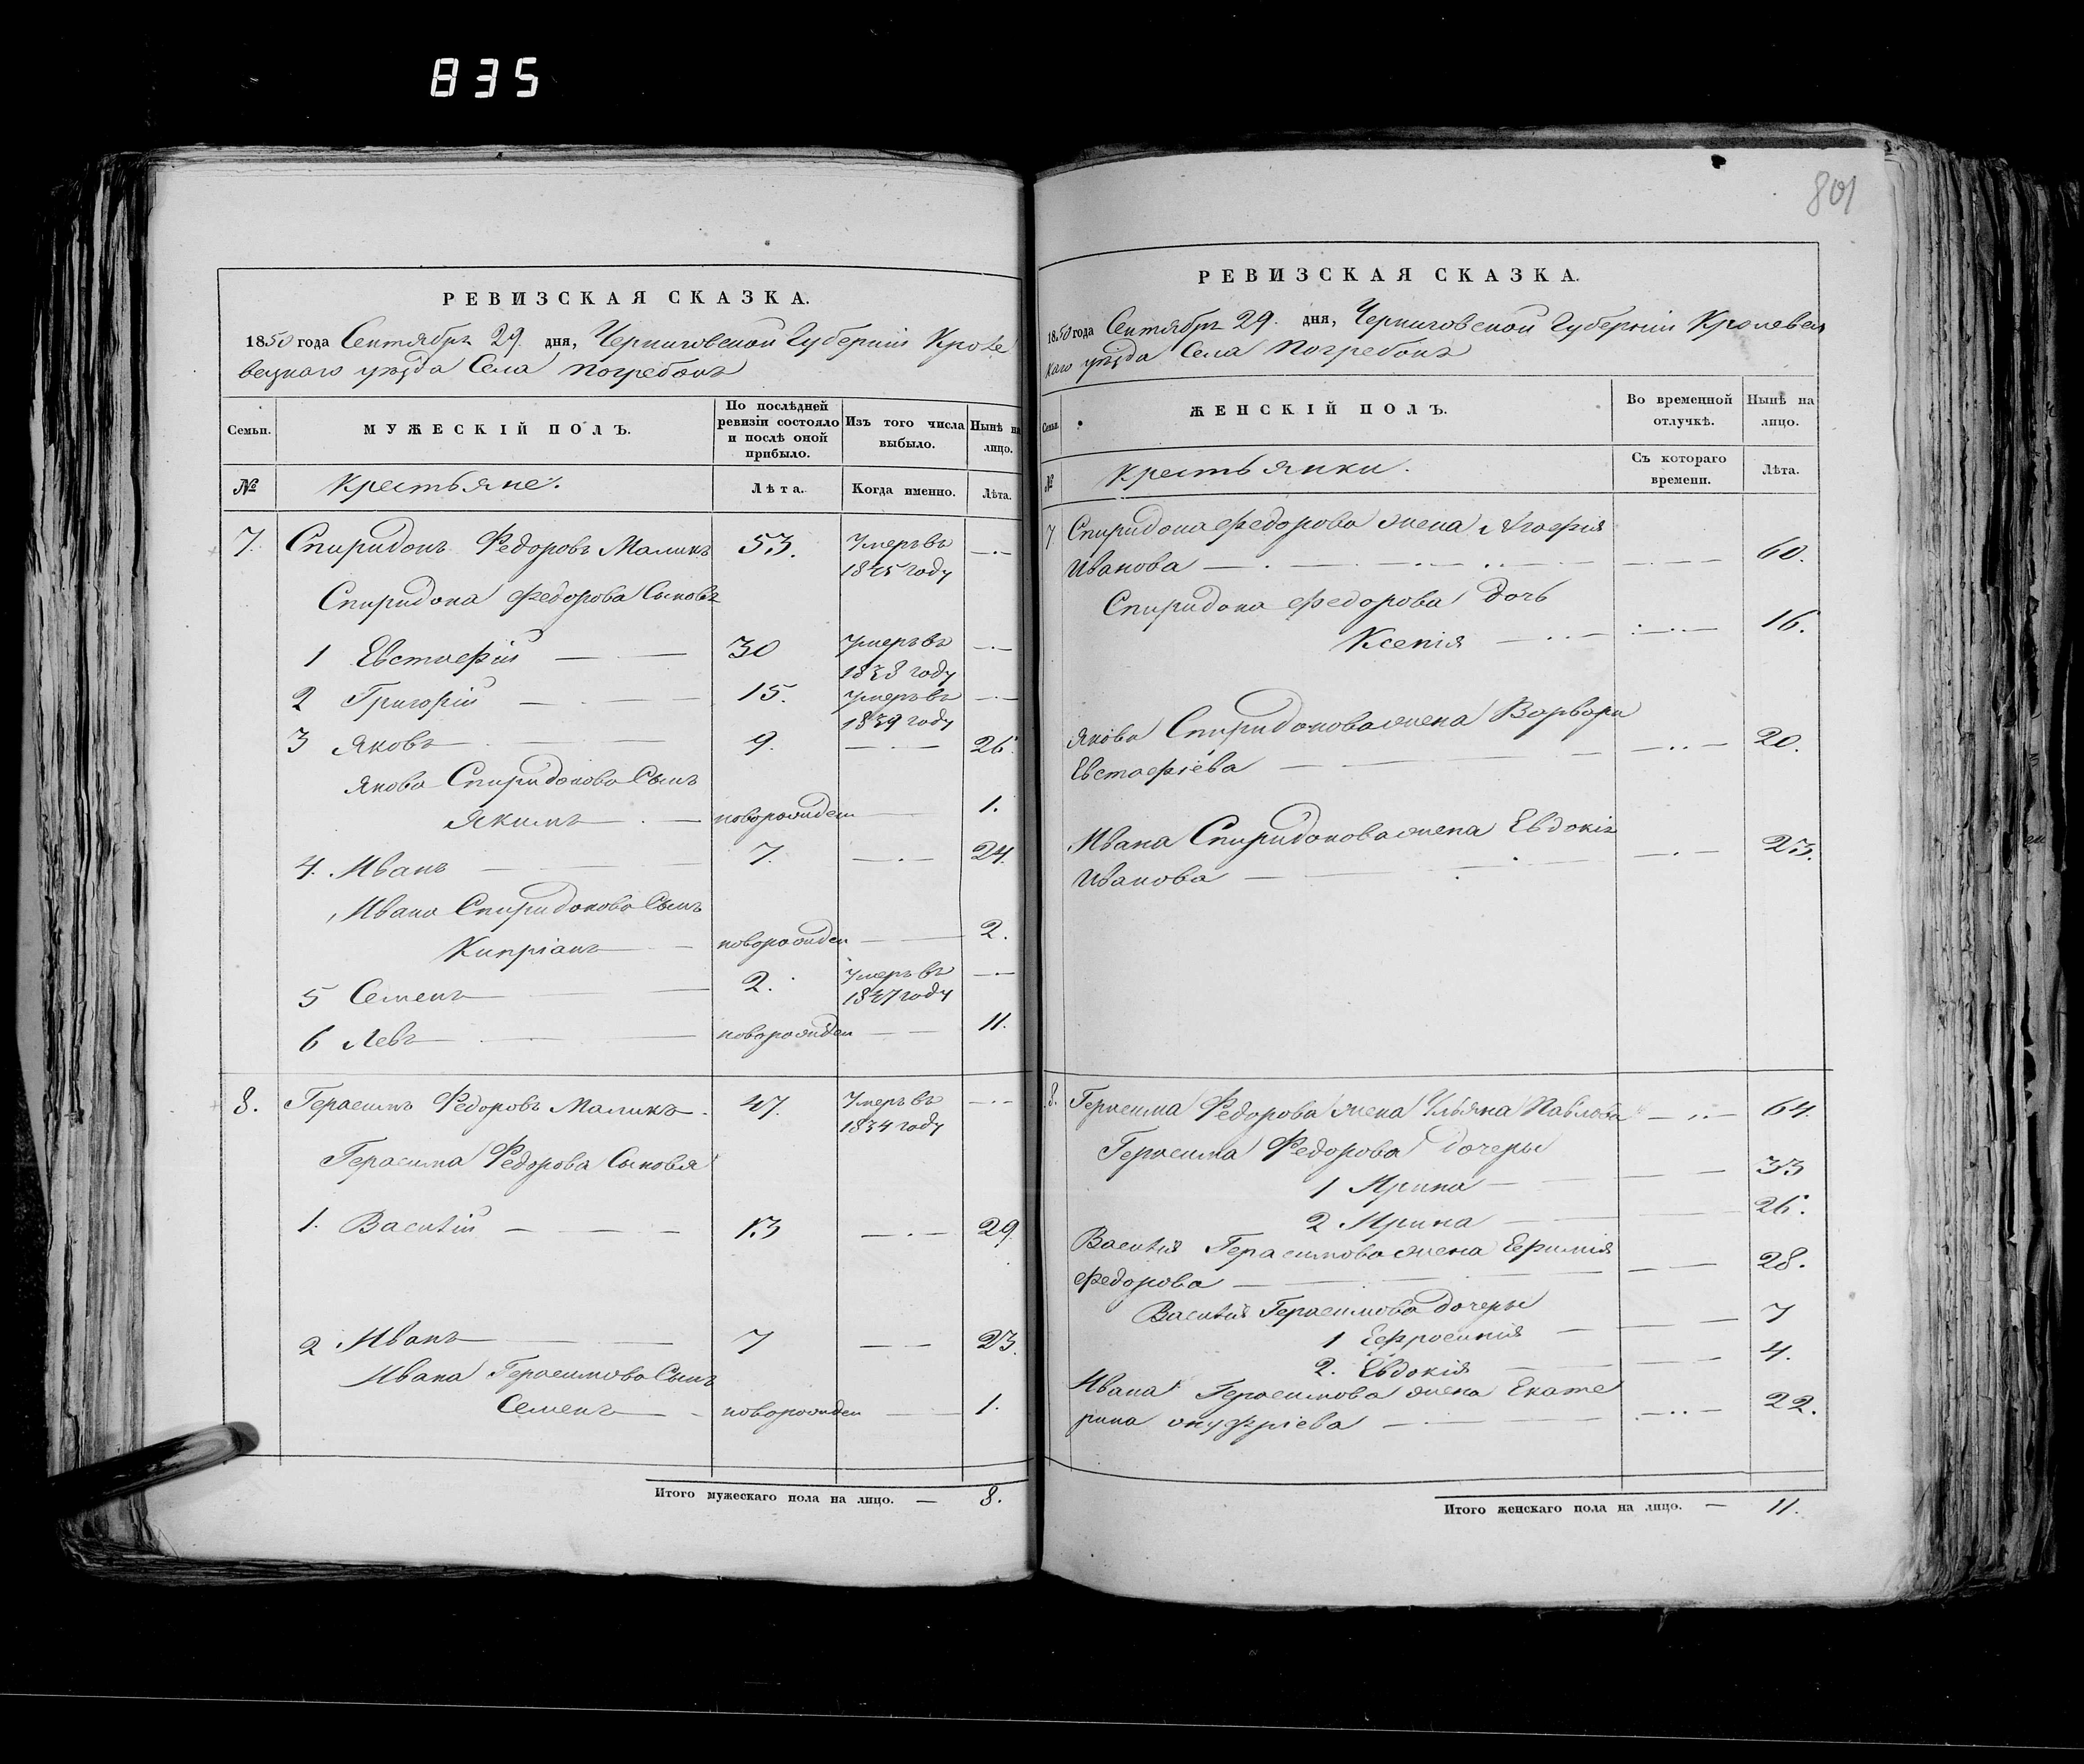 835
801
РЕВИЗСКАЯ СКАЗКА.
1850 года Сентябрь 29. дня, Черниговской Губернии Кроле
вецкаго уѣзда Села Погребокъ
Семьи. МУЖЕСКІЙ ПОЛЪ. По послѣдней ревизіи состояло и послѣ оной прибыло. Изъ того числа выбыло. Нынѣ на лицо.
№ Крестьяне. Лѣта. Когда именно. Лѣта.
7. Спиридонъ Федоровъ Маликъ 53. Умеръ въ 1845 году
Спиридона Федорова Сыновъя
1 Евстафій 30 Умеръ въ 1838 году
2 Григорій 15. Умеръ въ 1839 году
3 Яковъ 9. 26.
Якова Спиридонова Сынъ
Якимъ новорожден 1.
4. Иванъ 7. 24.
Ивана Спиридонова Сынъ
Кипріанъ новорожден 2.
5 Семенъ 2. Умеръ въ 1847 году
6 Левъ новорожден 11.
8. Герасимъ Федоровъ Маликъ 47. Умеръ въ 1834 году
Герасима Федорова Сыновья
1. Василій 13 29
2 Иванъ 7 23.
Ивана Герасимова Сынъ
Семенъ новорожден 1.
Итого мужескаго пола на лицо. — 8.
РЕВИЗСКАЯ СКАЗКА.
1850 года Сентябрь 29. дня, Черниговской Губернии Кролевец
каго уѣзда Села Погребокъ
Семьи. ЖЕНСКІЙ ПОЛЪ. Во временной отлучкѣ. Нынѣ на лицо.
№ Крестьянки. Съ котораго времени. Лѣта.
7 Спиридона Федорова жена Агафія
Иванова 60.
Спиридона Федорова дочь
Ксенія 16.
Якова Спиридонова жена Варвара
Евстафіева 20.
Ивана Спиридонова жена Евдокія
Иванова 23.
8. Герасима Федорова жена Ульяна Павлова 64.
Герасима Федорова дочеры
1 Ирина 33
2 Ирина 26.
Василія Герасимова жена Ефимія
Федорова 28.
Василія Герасимова дочеры
1 Ефросинія 7
2. Евдокія 4.
Ивана Герасимова жена Екате
рина онуфріева 22.
Итого женскаго пола на лицо. — 11.